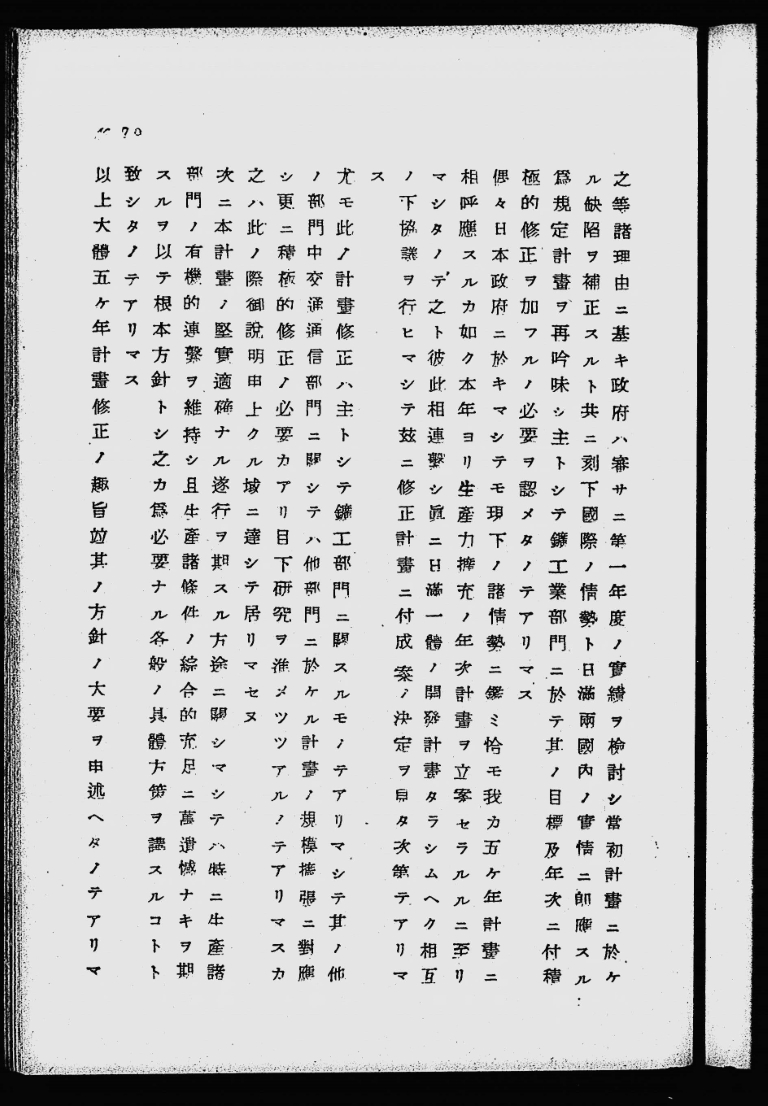 70
之等諸理由ニ基キ政府ハ審サニ第一年度ノ實績ヲ檢討シ當初計畫ニ於ケ
ル缺陷ヲ補正スルト共ニ刻下國際ノ情勢ト日滿兩國內ノ實情ニ卽應スル
爲規定計畫ヲ再吟味シ主トシテ鑛工業部門ニ於テ其ノ目標及年次ニ付積
極的修正ヲ加フルノ必要ヲ認メタノテアリマス
偶々日本政府ニ於キマシテモ現下ノ諸情勢ニ鑑ミ恰モ我カ五ケ年計畫ニ
相呼應スルカ如ク本年ヨリ生產力擴充ノ年次計畫ヲ立案セラルルニ至リ
マシタノデ之ト彼此相連繫シ眞ニ日滿一體ノ開發計畫タラシムヘク相互
ノ下協議ヲ行ヒマシテ茲ニ修正計畫ニ付成案ノ決定ヲ見タ次第テアリマ
ス
尤モ此ノ計畫修正ハ主トシテ鑛工部門ニ關スルモノテアリマシテ其ノ他
ノ部門中交通通信部門ニ關シテハ他部門ニ於ケル計畫ノ規模擴張ニ對應
シ更ニ積極的修正ノ必要カアリ目下硏究ヲ進メツツアルノテアリマスカ
之ハ此ノ際御說明申上クル域ニ達シテ居リマセヌ
次ニ本計畫ノ堅實適確ナル遂行ヲ期スル方途ニ關シマシテハ特ニ生產諸
部門ノ有機的連繫ヲ維持シ且生產諸條件ノ綜合的充足ニ萬遺憾ナキヲ期
スルヲ以テ根本方針トシ之カ爲必要ナル各般ノ具體方策ヲ講スルコトト
致シタノテアリマス
以上大體五ケ年計畫修正ノ趣旨竝其ノ方針ノ大要ヲ申述ヘタノテアリマ